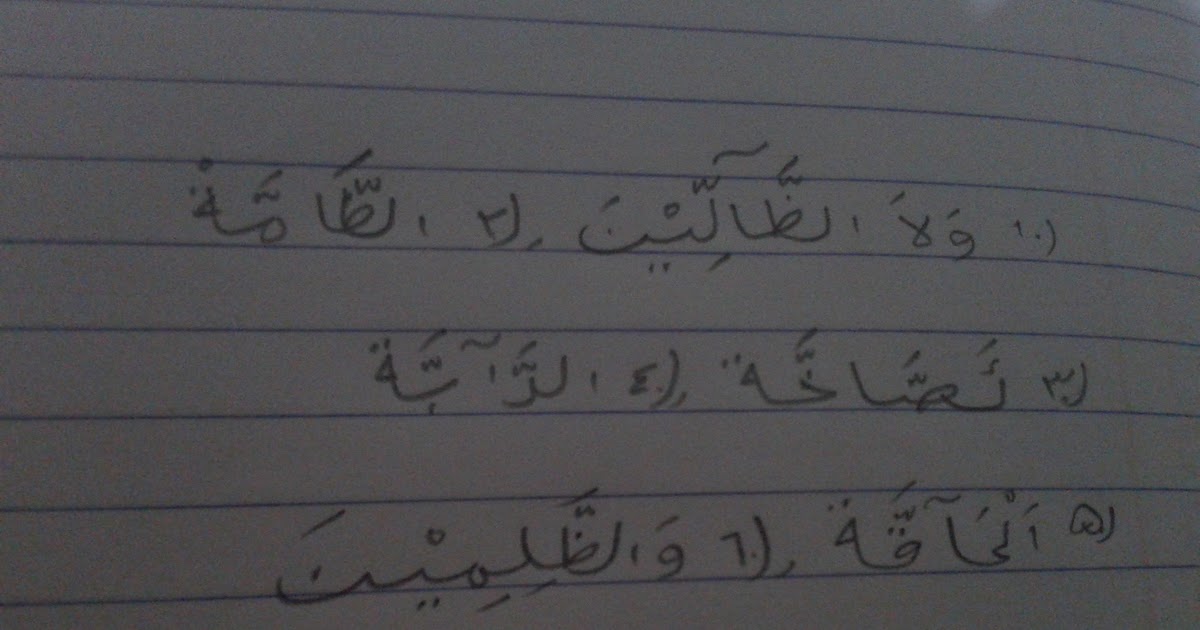 ١.) وَلاَ الظَّآلِّيْنَ ,(٢ الظَّامَّةْ
٣.) نَصَّاخَّة ,(٤. الدَّآبَّة
٥) اَلْحَآقَّة ,(٦. وَالظَّلِمِيْنَ